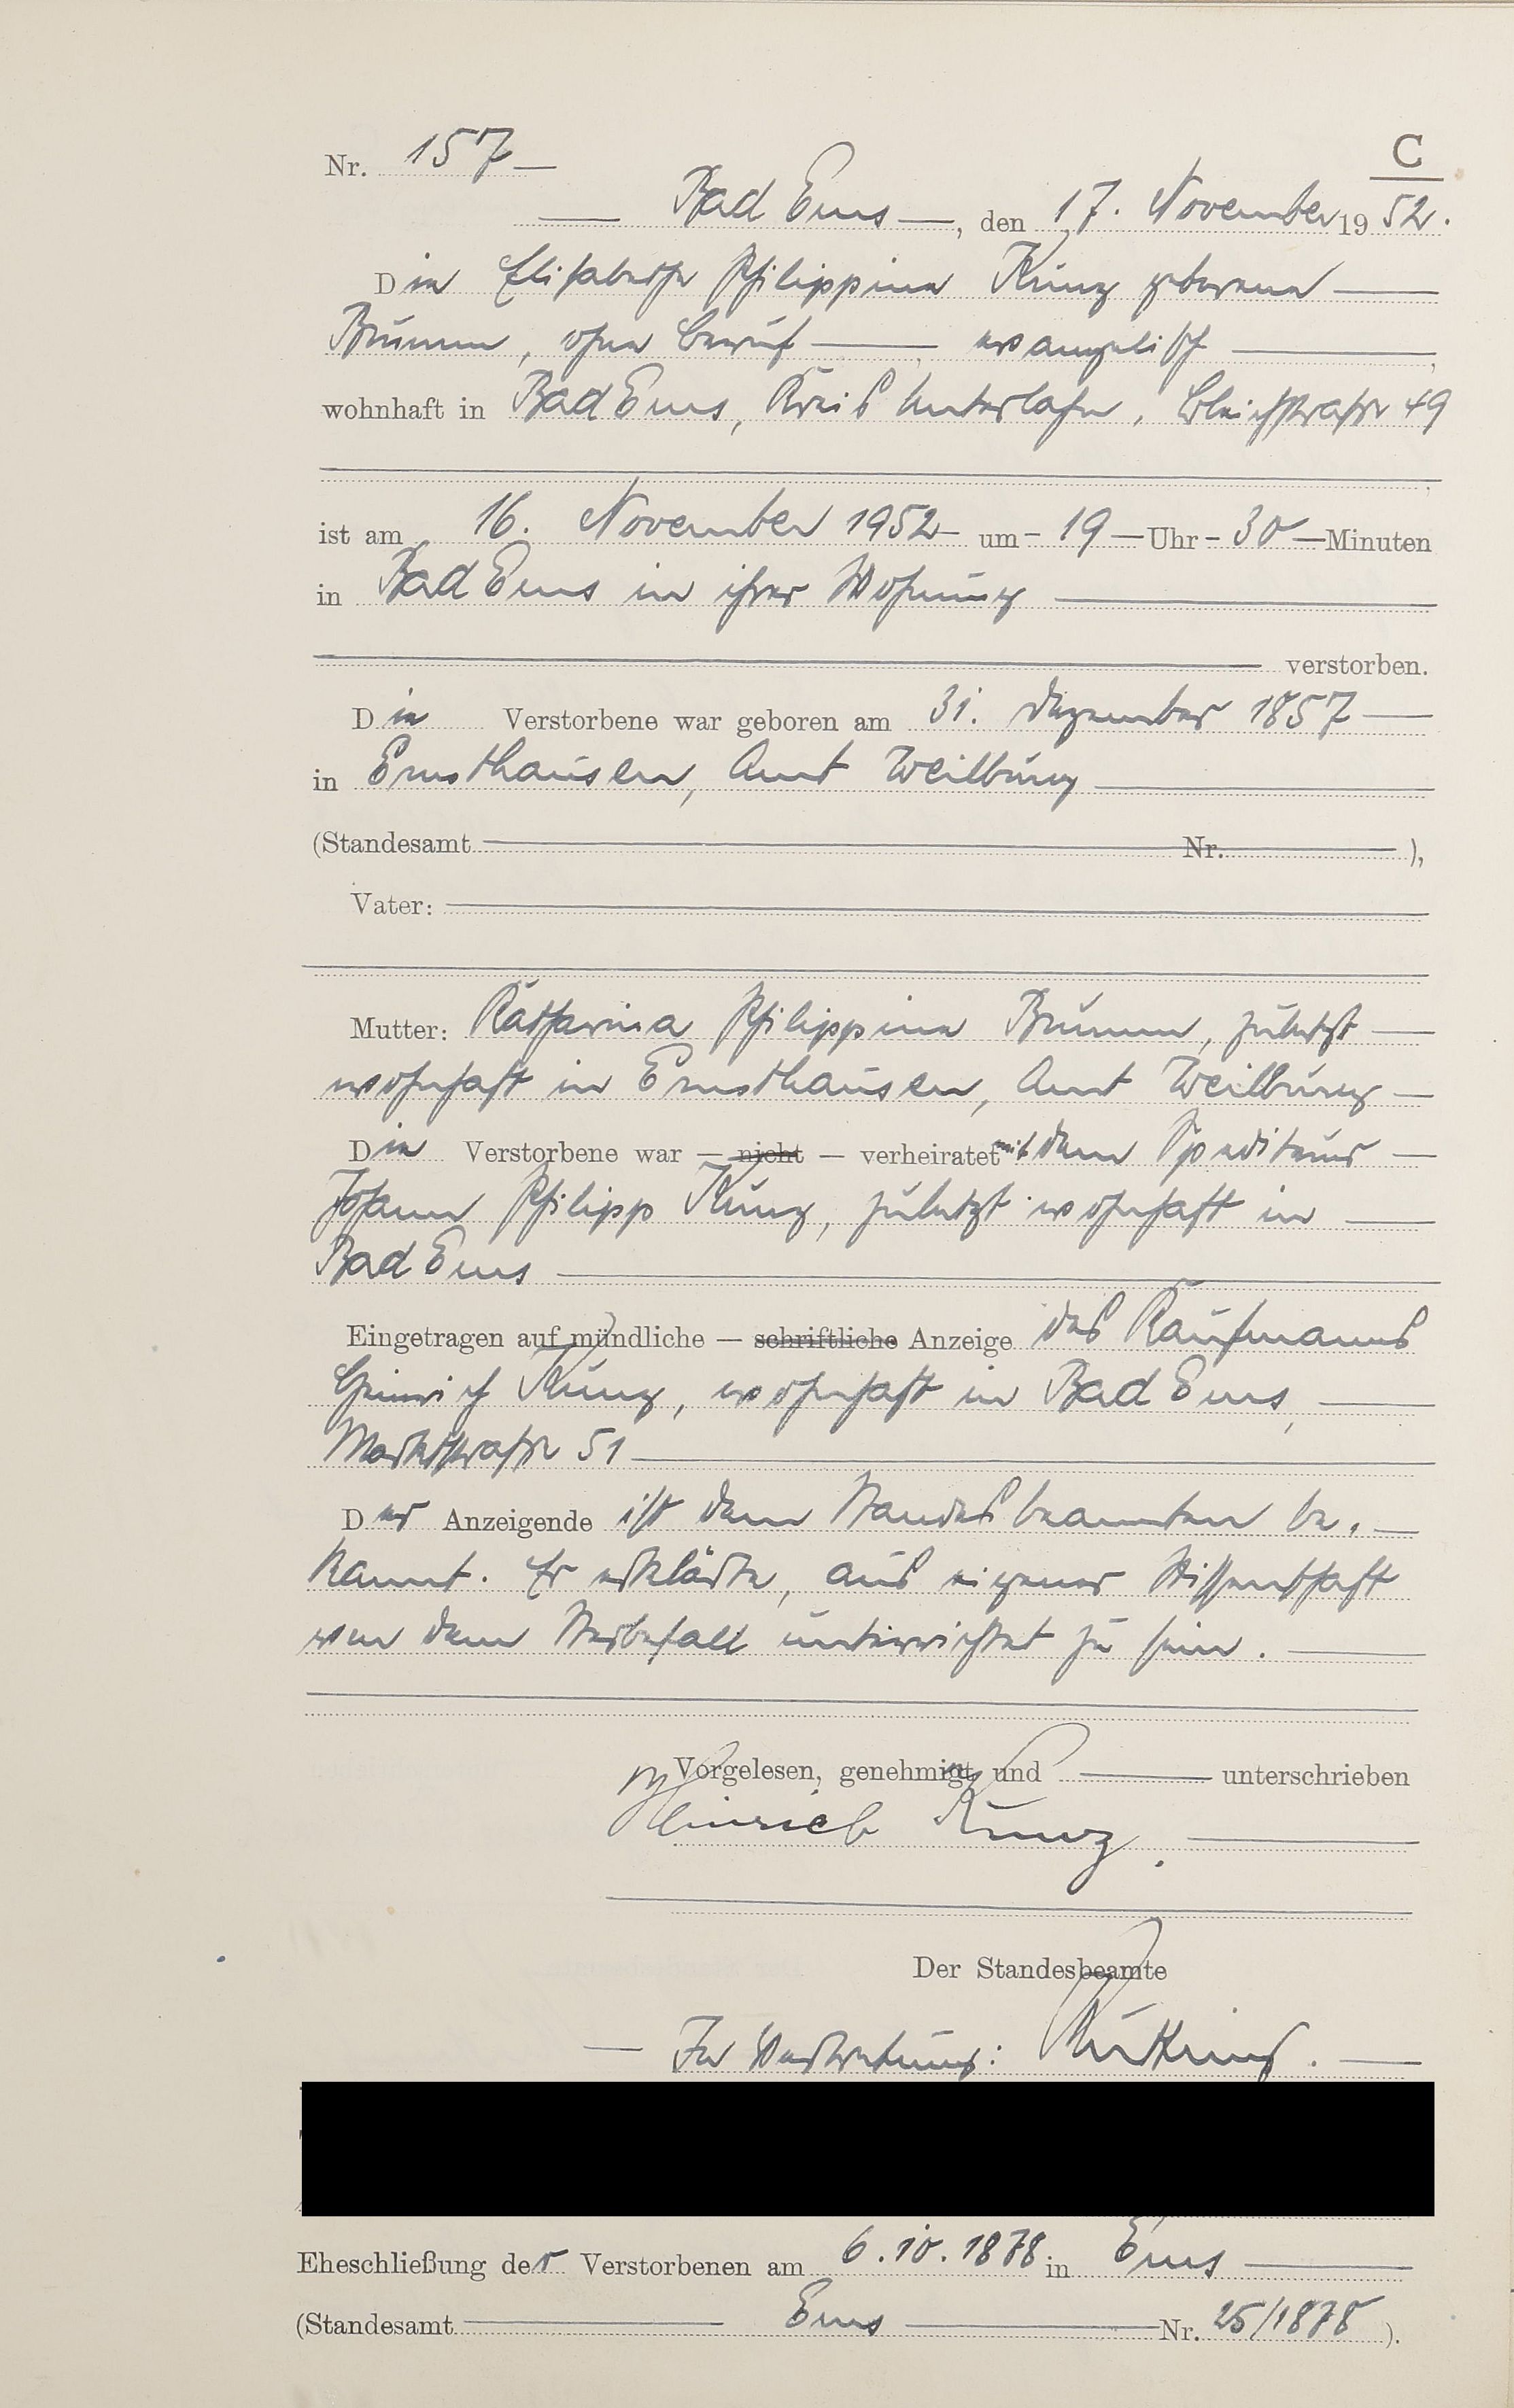 C
Nr. 157
Bad Ems, den 17. November 1952.
Die Elisabethe Philippine Kunz geborene
Brumm, ohne Beruf, evangelisch,
wohnhaft in Bad Ems, Kreis Unterlahn, Bleichstraße 49
ist am 16. November 1952 um 19 Uhr 30 Minuten
in Bad Ems in ihrer Wohnung
verstorben.
Die Verstorbene war geboren am 31. Dezember 1857
in Ernsthausen, Amt Weilburg
(Standesamt Nr. ),
Vater:
Mutter: Katharina Philippine Brumm, zuletzt
wohnhaft in Ernsthausen, Amt Weilburg
Die Verstorbene war — nicht — verheiratet mit dem Spediteur
Johann Philipp Kunz, zuletzt wohnhaft in
Bad Ems
Eingetragen auf mündliche — schriftliche Anzeige des Kaufmanns
Heinrich Kunz, wohnhaft in Bad Ems,
Marktstraße 51
Der Anzeigende ist dem Standesbeamten be-
kannt. Er erklärte, aus eigener Wissenschaft
von dem Sterbefall unterrichtet zu sein.
Vorgelesen, genehmigt und unterschrieben
Heinrich Kunz.
Der Standesbeamte
In Vertretung:
Eheschließung der Verstorbenen am 6.10.1878 in Ems
(Standesamt Ems Nr. 25/1878 ).